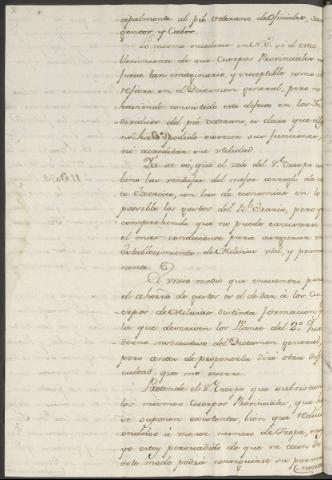 cipalmente al pié veterano de Oficiales, Sar
gentos, y Cabos.
Lo mismo sucederia en N.E. si el esta
blecimiento de sus Cuerpos Provinciales no
fuese tan imaginario, y suceptible como se
refiere en el Dictamen general, pero no
haviendo convertido este defecto en los In
dividuos del pié veterano, es claro que ellos
no han podido exercer sus funciones,
ni acreditar su utilidad.
Ya se vé, que el zelo del S.or Crespo com
bina las ventajas del mejor arreglo de es
te Exército, con las de economizar en lo
posible los gastos del R.l Erario, pero yo
comprehendo que no puede caminarse
el mas conducente para asegurar un
establecimiento de Milicias util, y perma
nente.
El unico medio que encuentro para
el ahorro de gastos es el de dar á los Cu
erpos de Milicias distinta formacion
la que describen los Planes del 2.o Qua
derno instructivo del Dictamen general,
pero antes de proponerla diré otra difi
cultad que me ocurre.
Pretende el S.or Crespo que subsistan
los mismos Cuerpos Provinciales, que ha
se suponen existentes, bien que redu
ciendolos á menor numero de Tropa, mas
yo estoy persuadido de que ni aun de
este modo podrá conseguirse su perma
nente